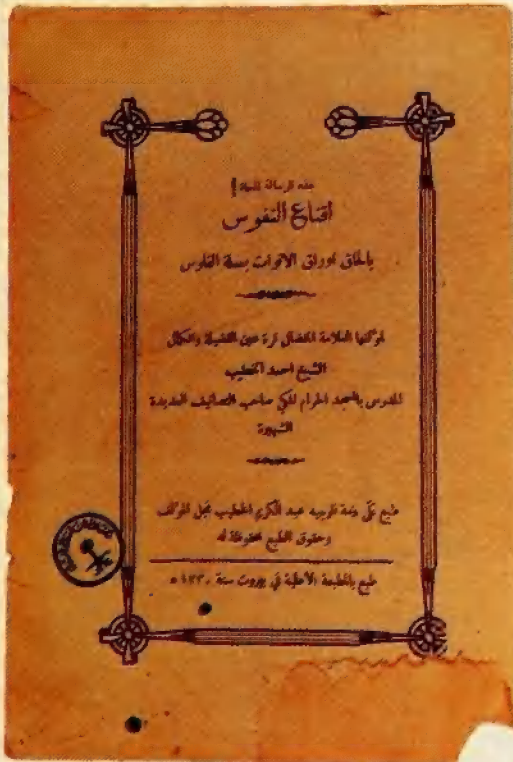 هذه الرسالة المسماة
اقناع النفوس
بالحاق اوراق الانوات بعملة الفلوس
لمؤلفها العلامة المفضال قرة عين الفضيلة والكمال
الشيخ احمد الخطيب
المدرس بالمسجد الحرام المكي صاحب التصانيف العديدة
الشهيرة
طبع على ذمة عبد الكريم الخطيب نجل المؤلف
وحقوق الطبع محفوظة له
طبع بالمطبعة الأهلية في بيروت سنة ١٣٣٠ ه